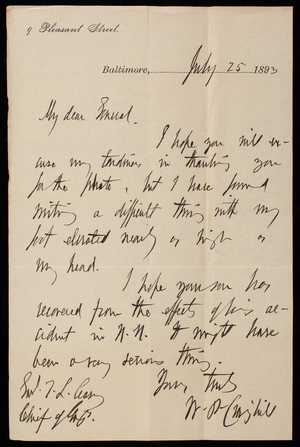 9 Pleasant Street.
Baltimore, July 25 1893
My dear General.
I hope you will ex-
cuse my tardiness in thanking you
for the photo, but I have found
writing a difficult thing with my
foot elevated nearly as high as
my head.
I hope your son has
recovered from the effects of his ac-
cident in N.H. It might have
been a very serious thing.
Yours truly
Genl. T. L. Casey
W. P. Craighill
Chief of Engs.